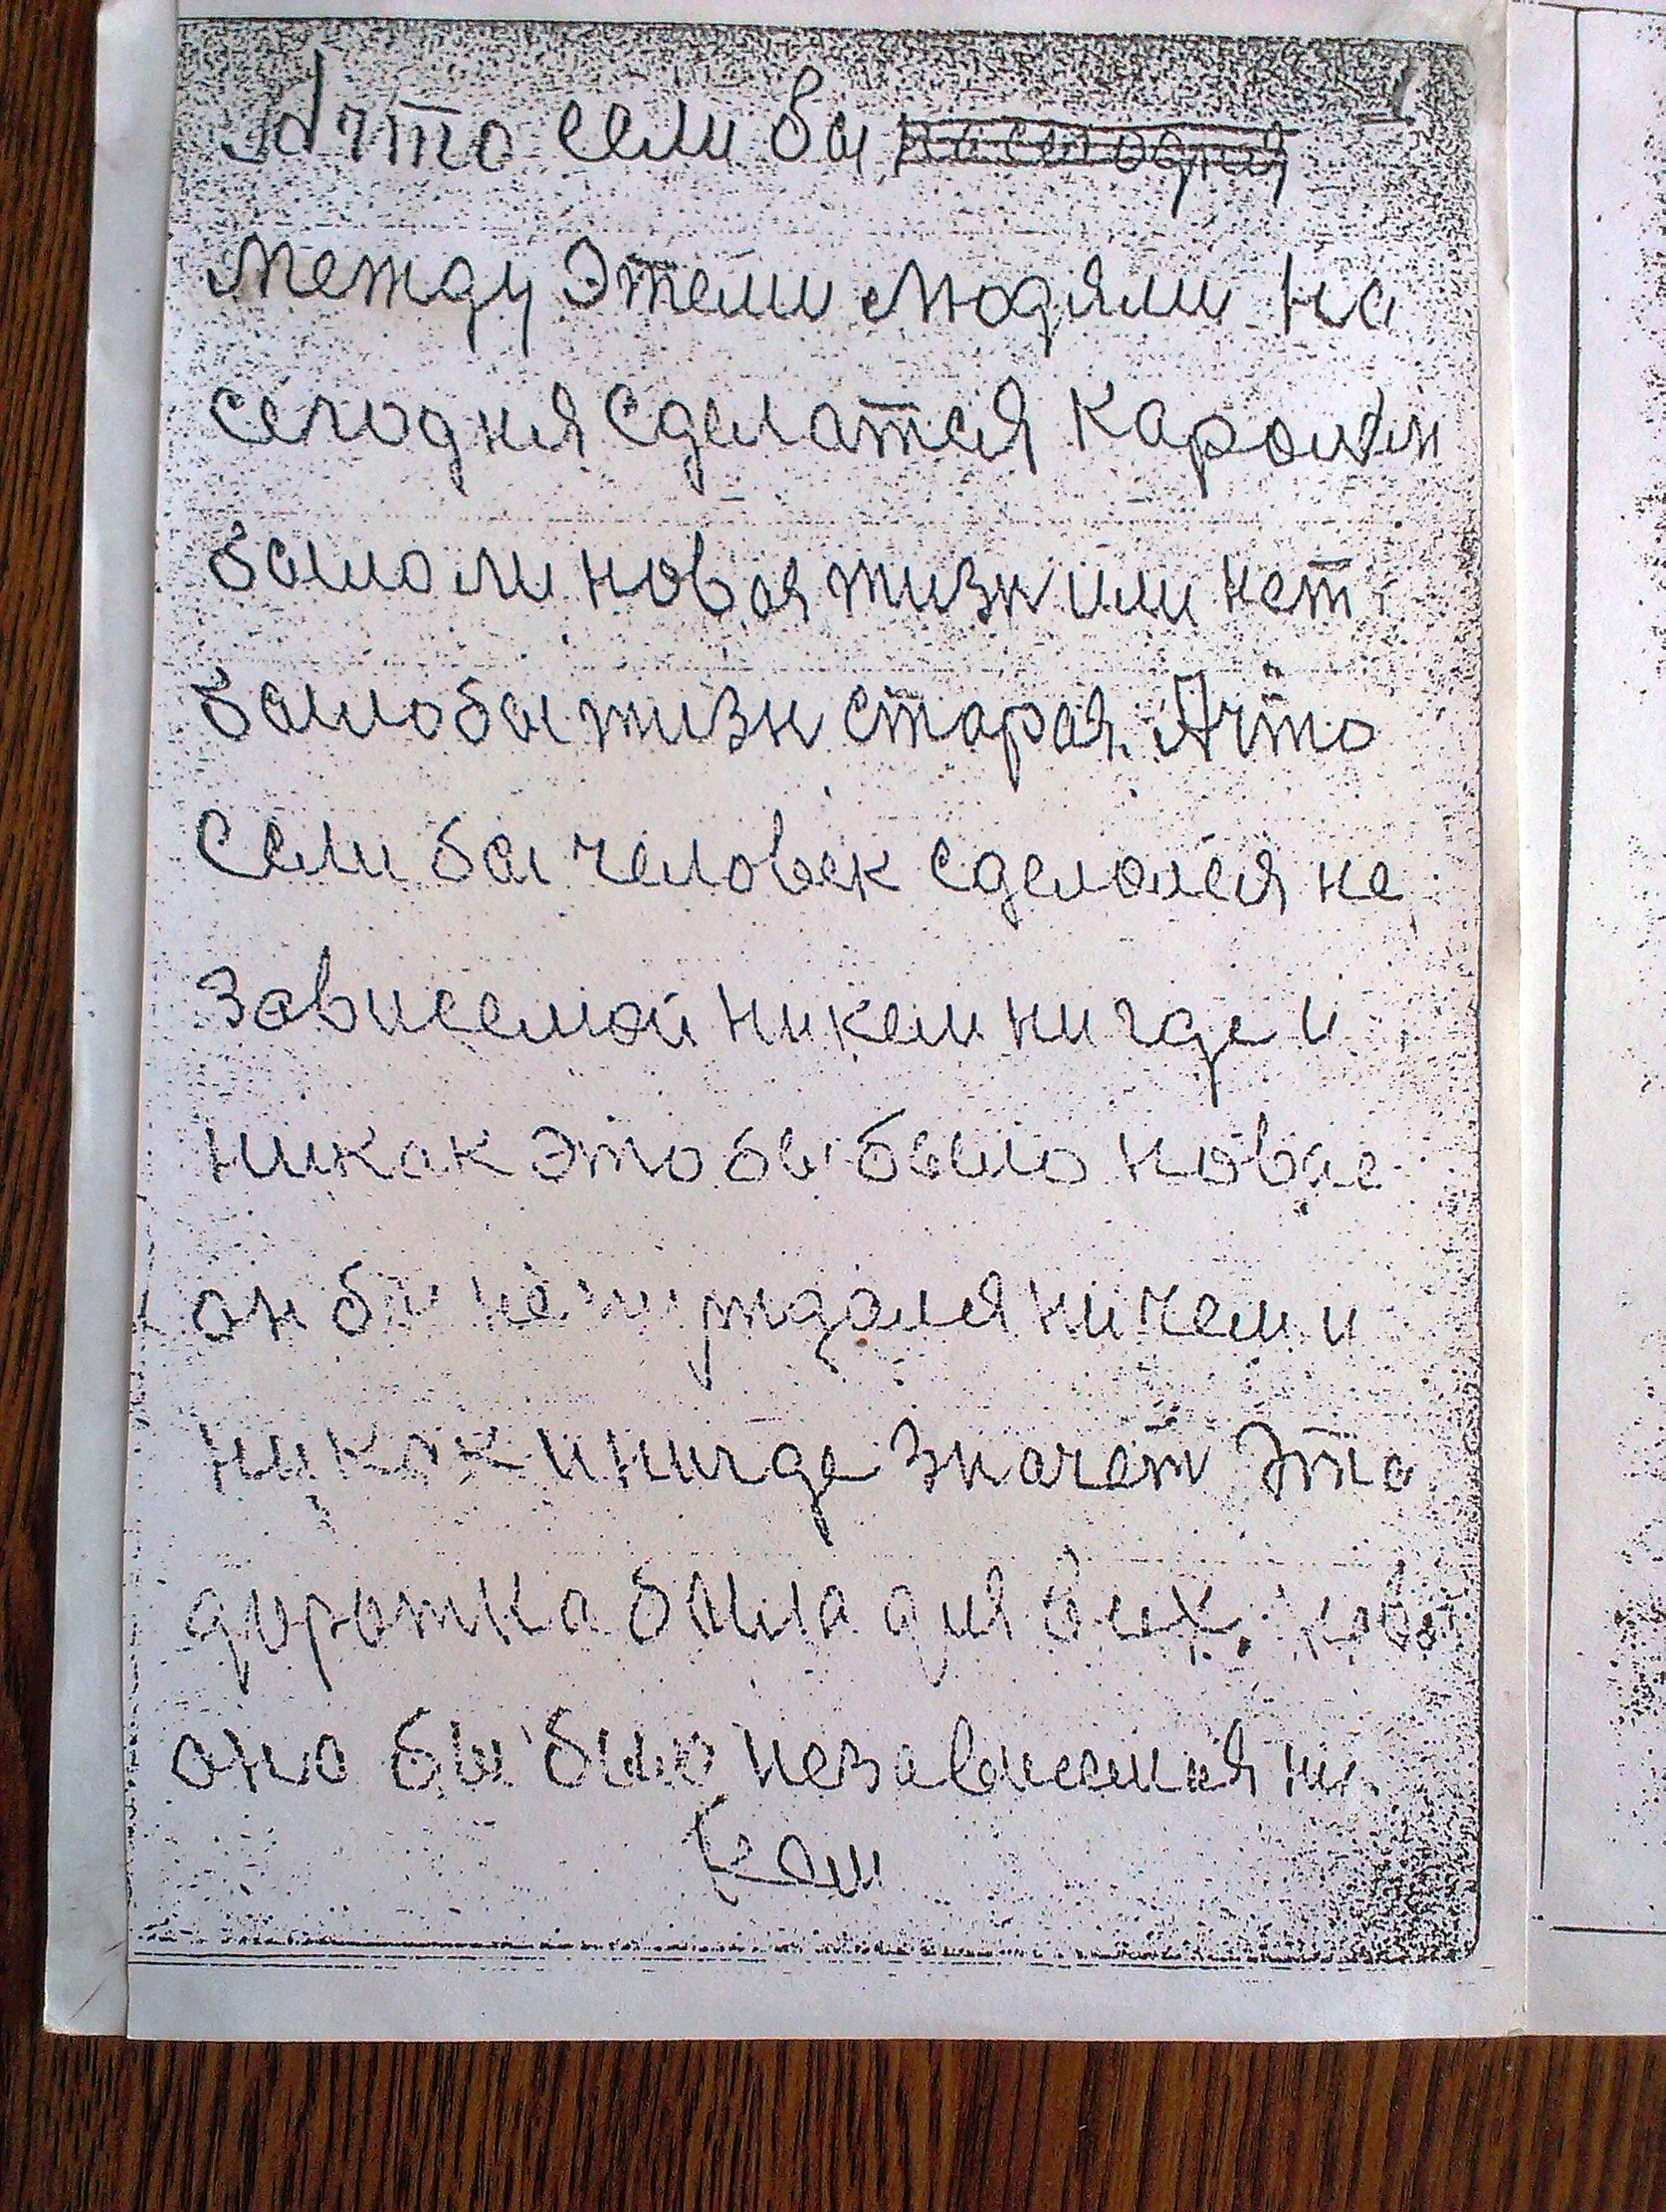 А что если бы
между этеми людями на
сегодня сделатся каролём
было ли новая жизн или нет
было бы жизн старая. А что
если бы человек сделался не
зависемой никем нигде и
никак это бы было новае
он бы не нуждался ничем и
никак и нигде значет эта
дорожка была для всех.
оно бы было незавесемая ни
кем